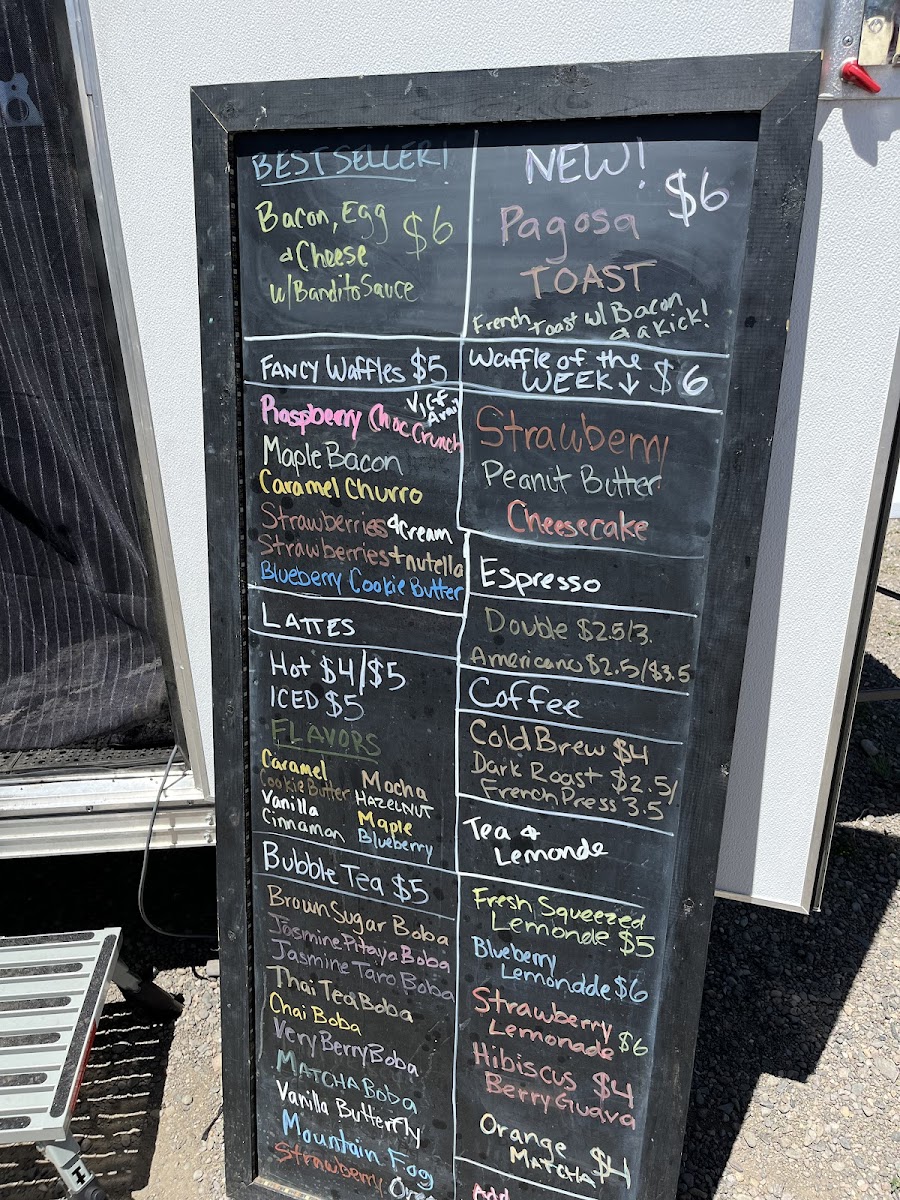 BEST SELLER!
Bacon, Egg $6
& Cheese
w/ Bandito Sauce
NEW!
$6
Pagosa
TOAST
French Toast w/ Bacon
& a kick!
FANCY WAFFLES $5
V/GF
Avail
Raspberry Choc Crunch
Maple Bacon
Caramel Churro
Strawberries & Cream
Strawberries + nutella
Blueberry Cookie Butter
Waffle of the
WEEK ↓ $6
Strawberry
Peanut Butter
Cheesecake
LATTES
Hot $4/$5
ICED $5
FLAVORS
Caramel
Cookie Butter
Vanilla
Cinnamon
Mocha
HAZELNUT
Maple
Blueberry
Espresso
Double $2.5/3.
Americano $2.5/$3.5
Coffee
Cold Brew $4
Dark Roast $2.5/
French Press 3.5
Bubble Tea $5
Brown Sugar Boba
Jasmine Pitaya Boba
Jasmine Taro Boba
Thai Tea Boba
Chai Boba
Very Berry Boba
MATCHA Boba
Vanilla Butterfly
Mountain Fog
Strawberry
Tea &
Lemonde
Fresh Squeezed
Lemonde $5
Blueberry
Lemonddde $6
Strawberry
Lemonade $6
Hibiscus $4
Berry Guava
Orange
MATCHA $4
Add